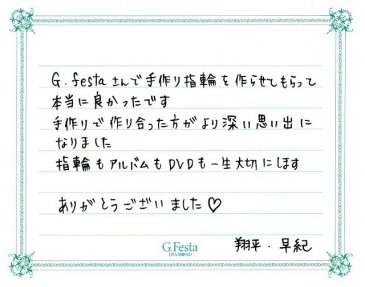 G.festaさんで手作り指輪を作らせてもらって
本当に良かったです
手作りで作り合った方がより深い思い出に
なりました
指輪もアルバムもDVDも一生大切にします
ありがとうございました♡
G.Festa
翔平・早紀